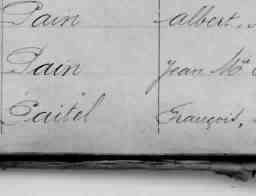 Pain Albert,
Pain Jean Mie
Paitel François,